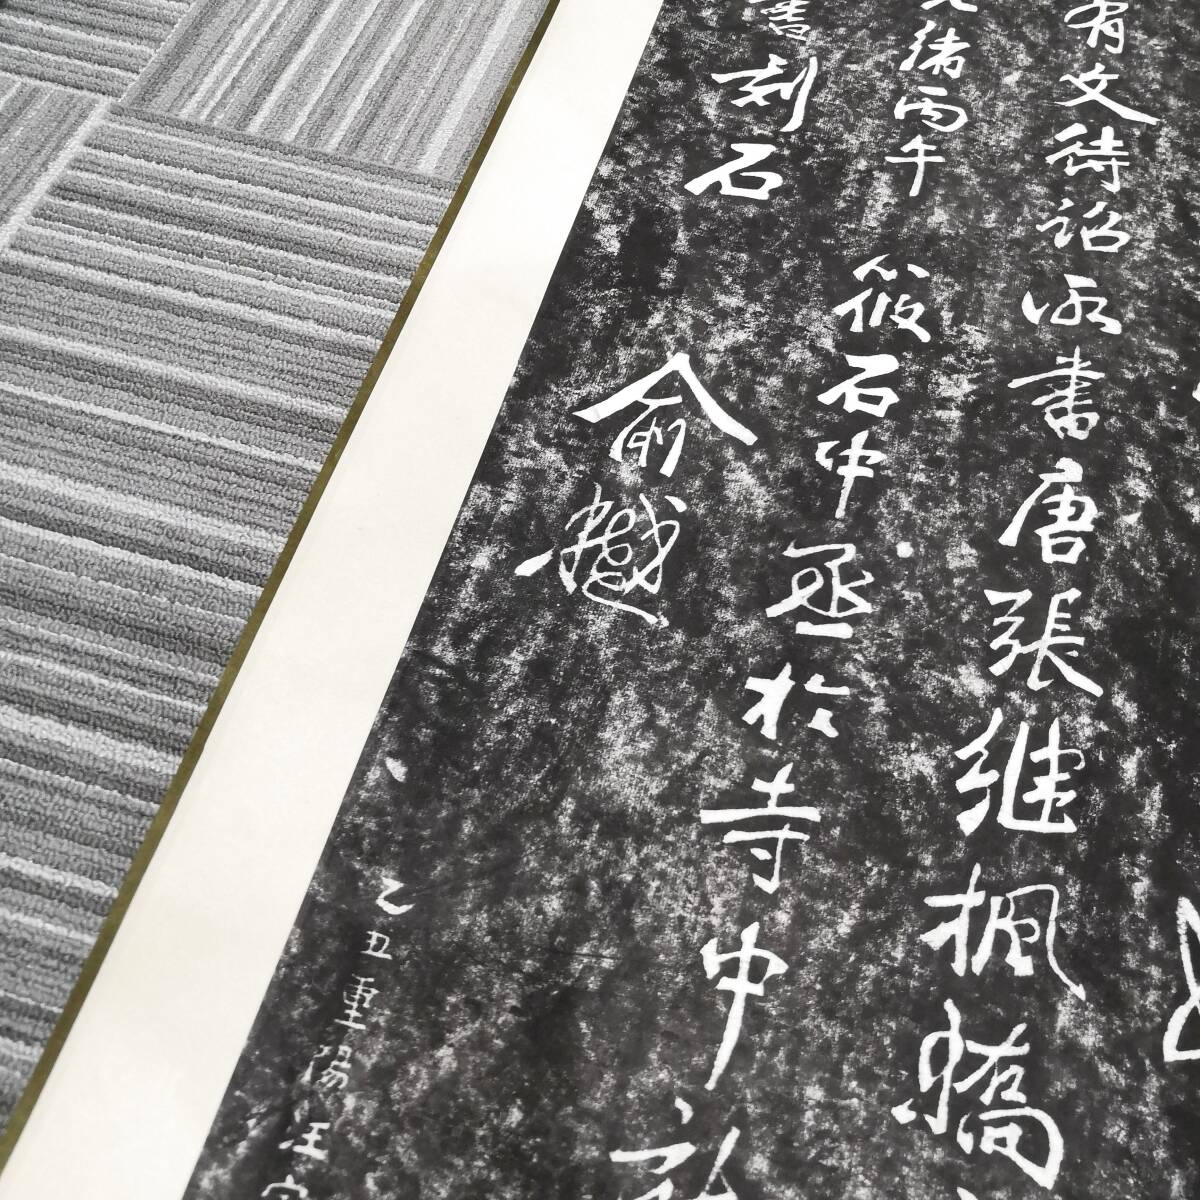 有文待詔所書唐張継楓橋
光緒丙午筱石中丞於寺中
書刻石俞樾
乙丑重陽汪